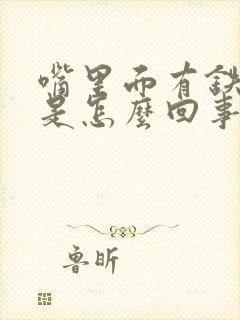 嘴里面有铁
是怎麼回事
鲁昕